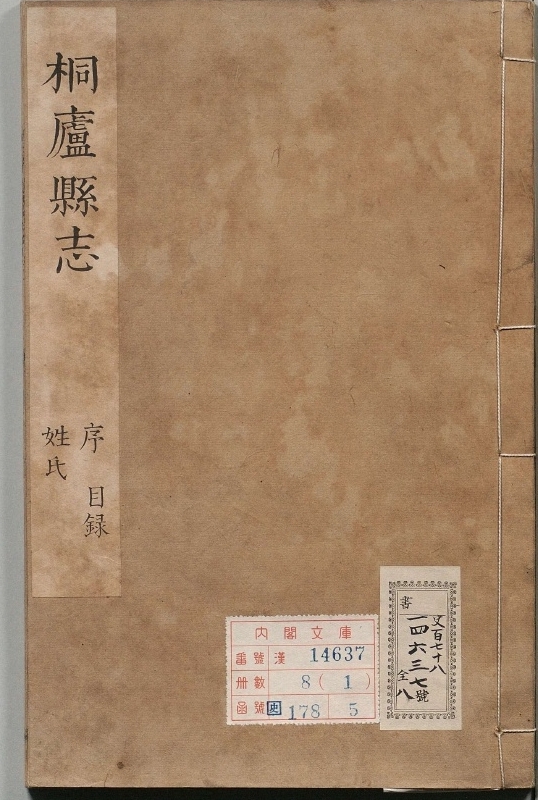 桐廬縣志
序 目録
姓氏
内閣文庫
番號 漢 14637
册數 8 ( 1 )
函號 史 178 5
書
史百七十八
一四六三七號
全八